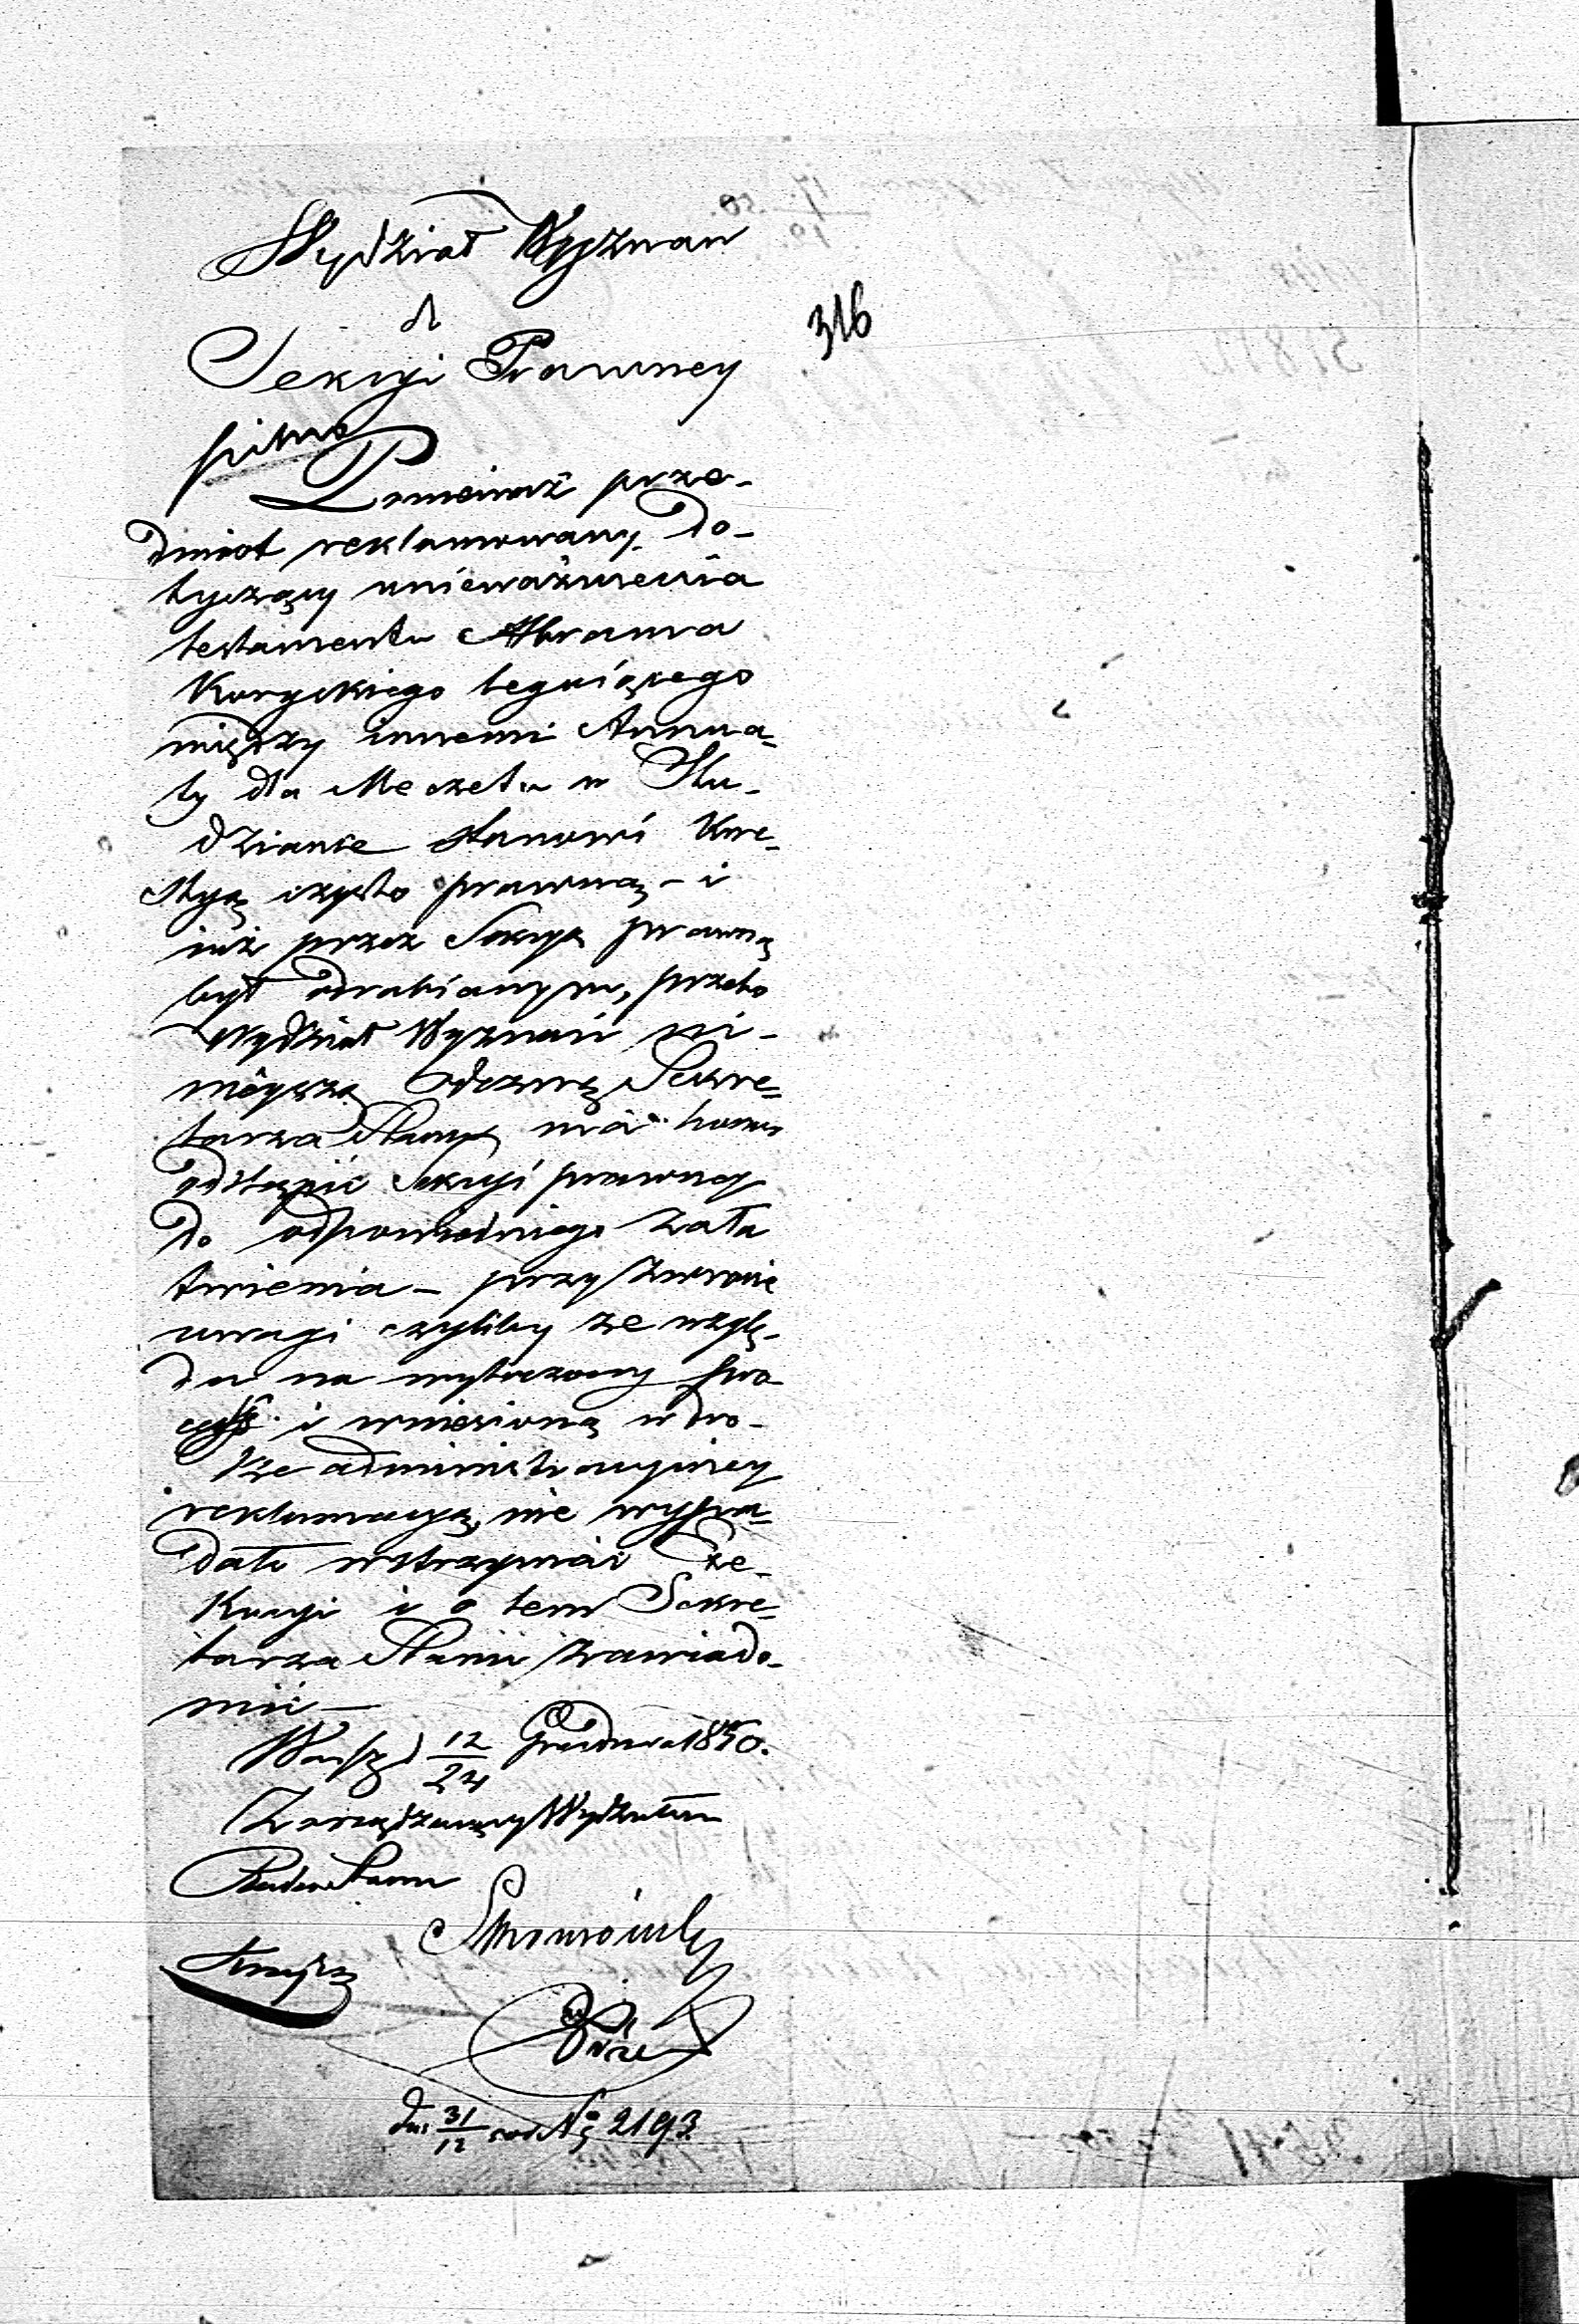 Wydział Wyznań
do
Sekcyi Prawney
316
pilno
Ponieważ prze-
dmiot reklamowany do-
tyczący unieważnienia
testamentu Abrama
Koryckiego tegoiącego
między innemi Annua-
ty dla Meczetu w Stu-
dziance stanowi Kwe-
styą czysto prawną - i
iuż przez Sekcyą prawną
był odrabianym, przeto
Wydział Wyznań ni-
nieyszą Odezwę Sekre-
tarza Stanu ma honor
odstąpić Sekcyi prawney
do odpowiedniego zała
twienia - przy zwróceniu
uwagi czyliby ze wzglę-
du na wytoczony pro-
cess i wniesioną w dro-
dze administracyiney
reklamacyą, nie wypa-
dało wstrzymać Exe-
kucyi i o tem Sekre-
tarza Stanu zawiado-
mić -
Warsz d 12/24 Grudnia 1850.
Zarządzaiący Wydziałem
Radca Stanu
dn: 31/12 No 2193